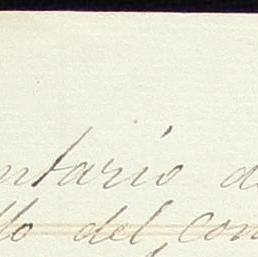 ntario d
llo del con